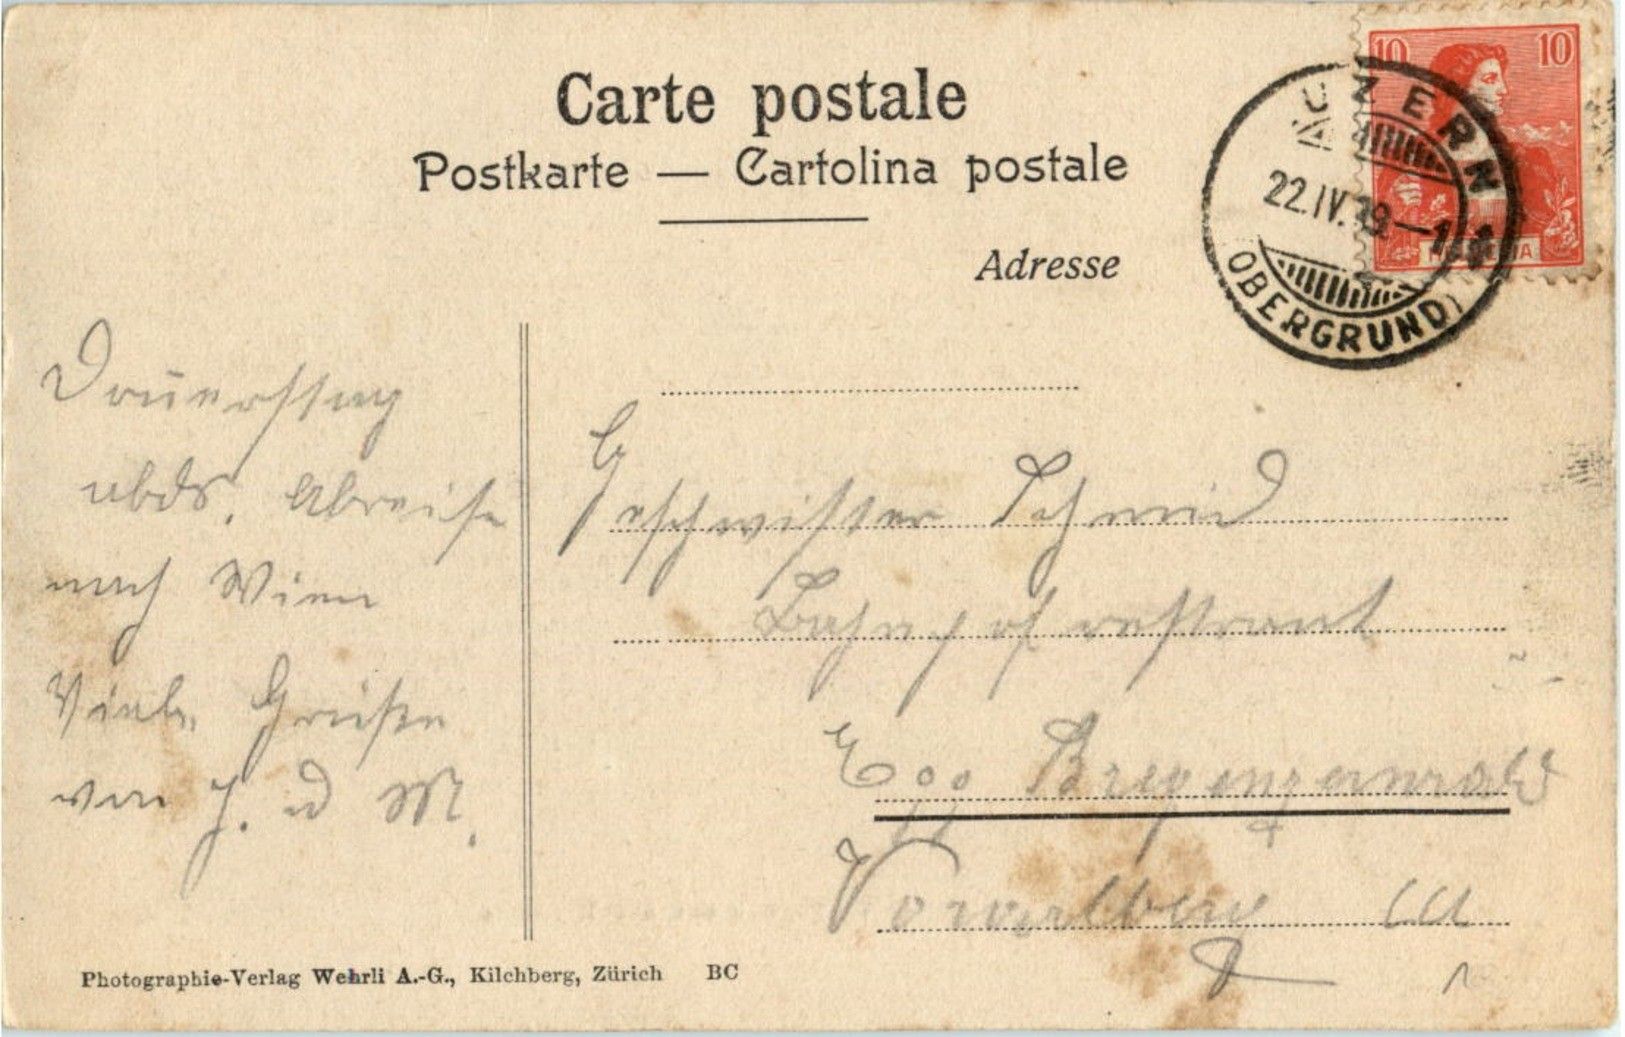 Carte postale
Postkarte — Cartolina postale
Adresse
10 10
LUZERN
22.IV.
(OBERGRUND)
HELVETIA
Donnerstag
abds. Abreise
nach Wien
Viele Grüße
von J. u M.
Geschwister Schmid
Bahnhofrestrant
Egg Bregenzerwald
Vorarlberg
Photographie-Verlag Wehrli A.-G., Kilchberg, Zürich BC